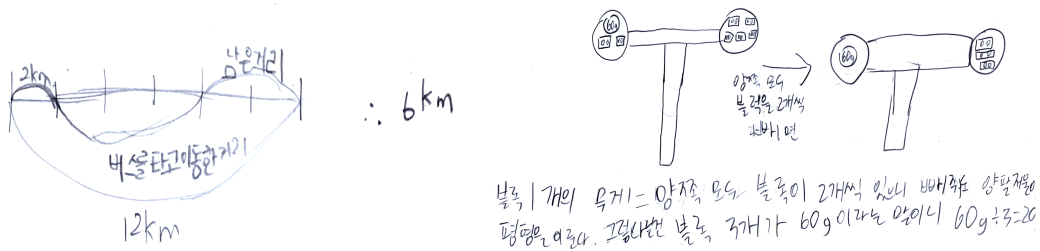 2km
남은거리
버스를 타고 이동한 거리
12km
∴ 6km
60g
60g
양쪽 모두
블럭을 2개씩
빼면
블록 1개의 무게는 양쪽 모두 블록이 2개씩 있으니 빼줘도 양팔저울이
평형을 이룬다. 그렇다는건 블록 3개가 60g이라는 말이니 60g÷3=20